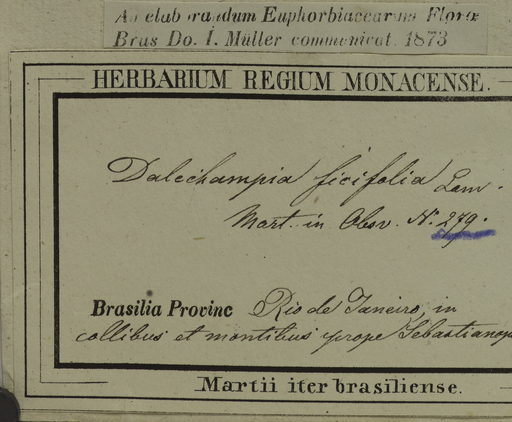 Ad elaborandum Euphorbiacearum Floræ
Bras Do. I. Müller communicat. 1873
HERBARIUM REGIUM MONACENSE.
Dalechampia ficifolia Lam.
Mart. in Obsv. N. 279.
Brasilia Provinc Rio de Janeiro, in
collibus et montibus prope Sebastianop
Martii iter brasiliense.